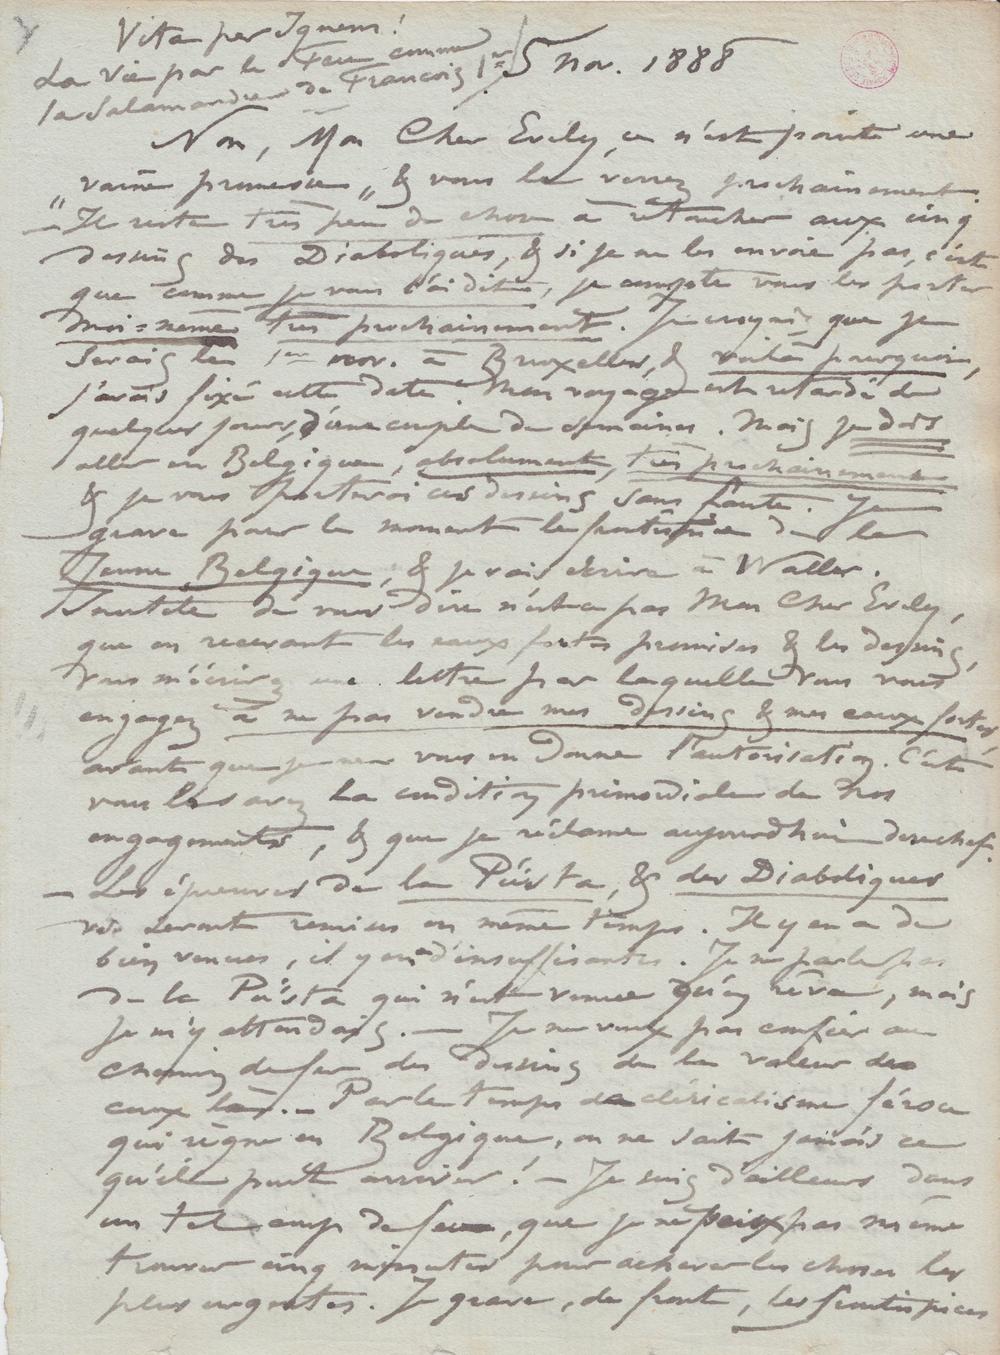 Vita per Ignem!
La vie par le Feu comme
la Salamandre de François 1er
5 Nov. 1888
Non, Mon Cher Evely, ce n'est point une
"vaine promesse" & vous le verrez prochainement.
— Il reste très peu de chose à retoucher aux cinq
dessins des Diaboliques, & si je ne les envoie pas, c'est
que comme je vous l'ai dit, je compte vous les porter
moi-même très prochainement. Je croyais que je
serais le 1er nov. à Bruxelles, & voilà pourquoi,
j'avais fixé cette date. Mon voyage est retardé de
quelques jours, d'une couple de semaines. Mais je dois
aller en Belgique, absolument, très prochainement
& je vous porterai ces dessins sans faute. Je
grave pour le moment le frontispice de la
Jeune Belgique, & je vais écrire à Waller.
Inutile de vous dire n'est-ce pas Mon Cher Evely,
que en recevant les eaux fortes promises & les dessins,
vous m'écrirez une lettre par laquelle vous vous
engagez à ne pas vendre mes dessins & mes eaux fortes,
avant que je ne vous en donne l'autorisation. C'était
vous le savez la condition primordiale de nos
engagements, & que je réclame aujourdhui derechef.
— Les épreuves de la Püsta, & des Diaboliques
vous seront remises en même temps. Il y en a de
bien venues, il y en a d'insuffisantes. Je ne parle pas
de la Püsta qui n'est venue qu'en rêve, mais
je m'y attendais. — Je ne veux pas confier au
chemin de fer des dessins de la valeur de
ceux là. — Par le temps de cléricalisme féroce
qui règne en Belgique, on ne sait jamais ce
qu'il peut arriver! — Je suis d'ailleurs dans
un tel coup de feu, que je ne peux pas même
trouver cinq minutes pour achever les choses les
plus urgentes. Je grave, de front, les frontispices